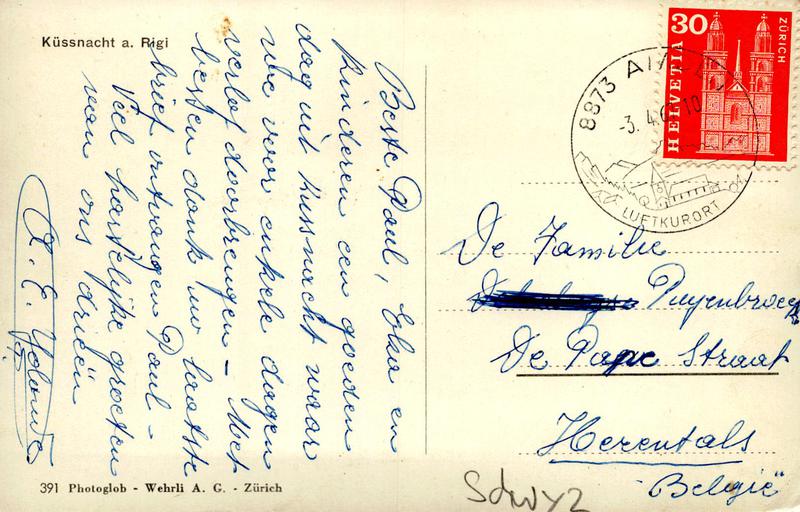 Küssnacht a. Rigi
Beste Paul, Elsa en
kinderen een goeden
dag uit Kussnacht waar
we voor enkele dagen
verlof doorbrengen - Met
besten dank uw laatste
brief ontvangen Paul -
Veel hartelijke groeten
van ons drieën
391 Photoglob - Wehrli A. G. - Zürich
HELVETIA 30
ZÜRICH
8873
-3. 4. 6
LUFTKURORT
De Familie
Puyenbroeck
De Pape Straat
Herentals
België
Schwyz